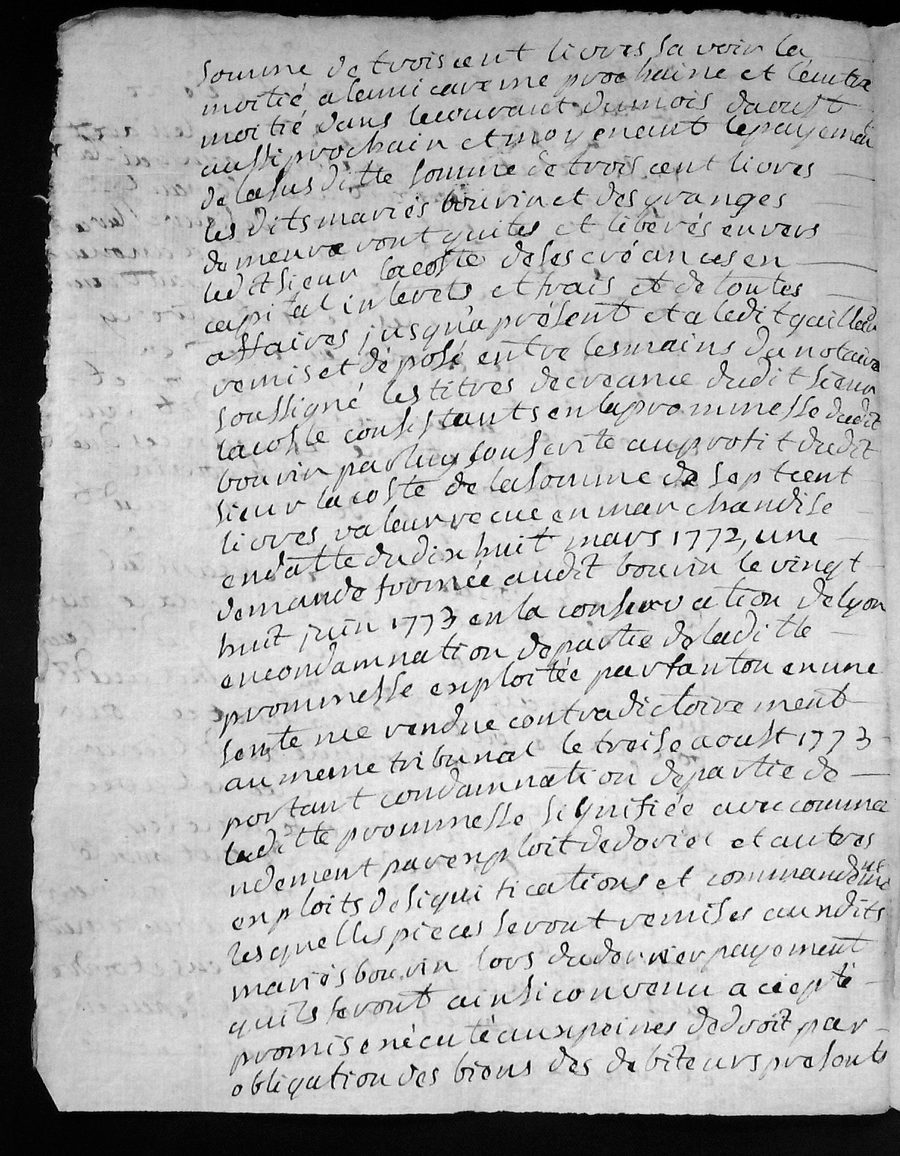 somme de trois cent livres savoir la
moitié a la mi careme prochaine et l'autre
moitié dans le courant du mois d'aoust
aussi prochain et moyenent le payement
de la sus ditte somme de trois cent livres
les dits mariés bouvin et des granges
demeureront quites et liberés envers
ledit sieur lacoste de ses créances en
capital interets et frais et de toutes
affaires jusqu'a présent et a ledit
remis et déposé entre les mains du notaire
soussigné les titres de creance dudit sieur
lacoste consistants en la prommesse dudit
bouvin par luy souscrite au profit dudit
sieur lacoste de la somme de sept cent
livres valeur recue en marchandise
en datte du dix huit mars 1772, une
demande formée audit bouvin le vingt
huit juin 1773 en la conservation de lyon
en condamnation de partie de laditte
prommesse exploitée par tanton en une
sentence rendue contradictoirement
au meme tribunal le treise aoust 1773
portant condamnation de partie de
laditte prommesse signifiée avec comma
ndement par exploit de et autres
exploits de significations et commandeme
lesquelles pieces seront remises aux dits
mariés bouvin lors du dernier payement
qu'ils feront ainsi convenu accepté
promis exécuté aux peines de droit par
obligation des biens des debiteurs presents